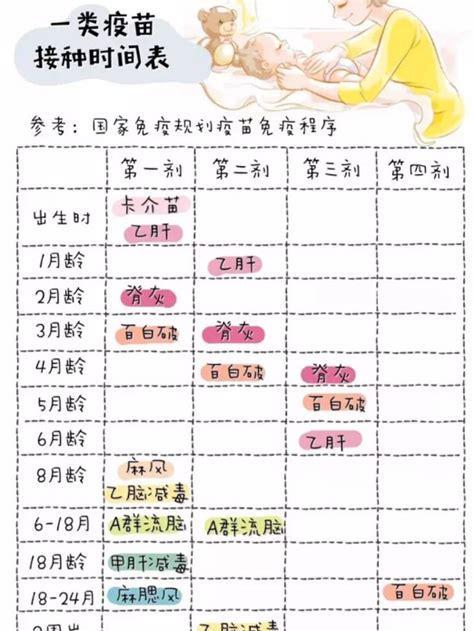 一类疫苗
接种时间表
参考：国家免疫规划疫苗免疫程序
第一剂 第二剂 第三剂 第四剂
出生时 卡介苗
乙肝
1月龄 乙肝
2月龄 脊灰
3月龄 百白破 脊灰
4月龄 百白破 脊灰
5月龄 百白破
6月龄 乙肝
8月龄 麻风
乙脑减毒
6-18月 A群流脑 A群流脑
18月龄 甲肝减毒
18-24月 麻腮风 百白破
乙脑减毒